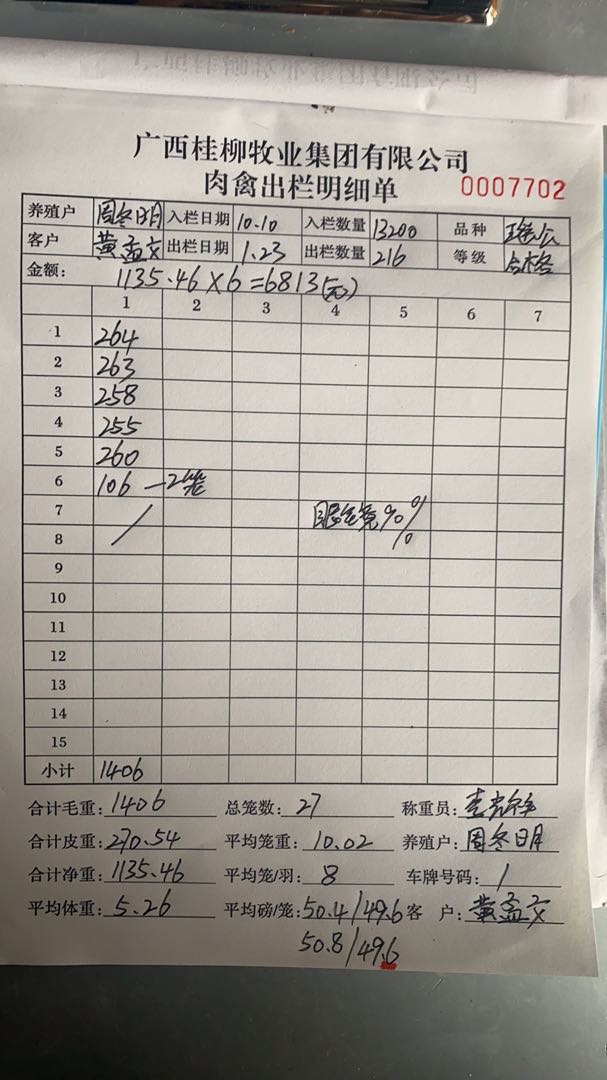 广西桂柳牧业集团有限公司
肉禽出栏明细单 0007702
养殖户 周冬明 入栏日期 10.10 入栏数量 13200 品种
客户 黄孟文 出栏日期 1.23 出栏数量 216 等级 合格
金额: 1135.46×6=6813(元)
1 2 3 4 5 6 7
1 264
2 263
3 258
4 255
5 260
6 106 —2笼
7
8
9
10
11
12
13
14
15
小计 1406
合计毛重: 1406 总笼数: 27 称重员:
合计皮重: 270.54 平均笼重: 10.02 养殖户: 周冬明
合计净重: 1135.46 平均笼/羽: 8 车牌号码: /
平均体重: 5.26 平均磅/笼: 50.4/49.6 客 户: 黄孟文
50.8/49.6